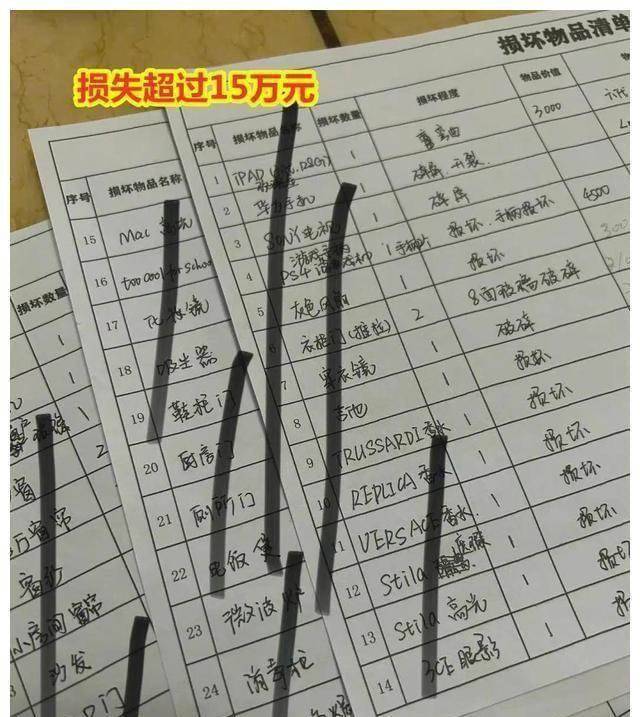 损失超过15万元
损坏物品清单
序号 损坏物品名称 损坏数量 损坏程度 物品价值
1 iPAD 128G 1 弯曲 3000
2 华为手机 1 碎屏.开裂
3 SONY电视 1 碎屏
4 PS4 1 手柄 损坏.手柄损坏 4500
5 灰色风扇 1 损坏
6 衣柜门(推拉) 2 8面玻璃破碎
7 穿衣镜 1 破碎
8 吉他 1 损坏
9 TRUSSARDI香水 1 损坏
10 REPLICA香水 1 损坏
11 VERSACE香水 1 损坏
12 Stila 1 损坏
13 Stila 高光 1 损坏
14 3CE眼影 1 损坏
序号 损坏物品名称
15 Mac 高光
16 too cool for school
17 化妆镜
18 吸尘器
19 鞋柜门
20 厨房门
21 厕所门
22 电饭煲
23 微波炉
24 消毒柜
损坏数量
1
1
1
2
窗帘
窗纱
小房间窗帘
沙发
门